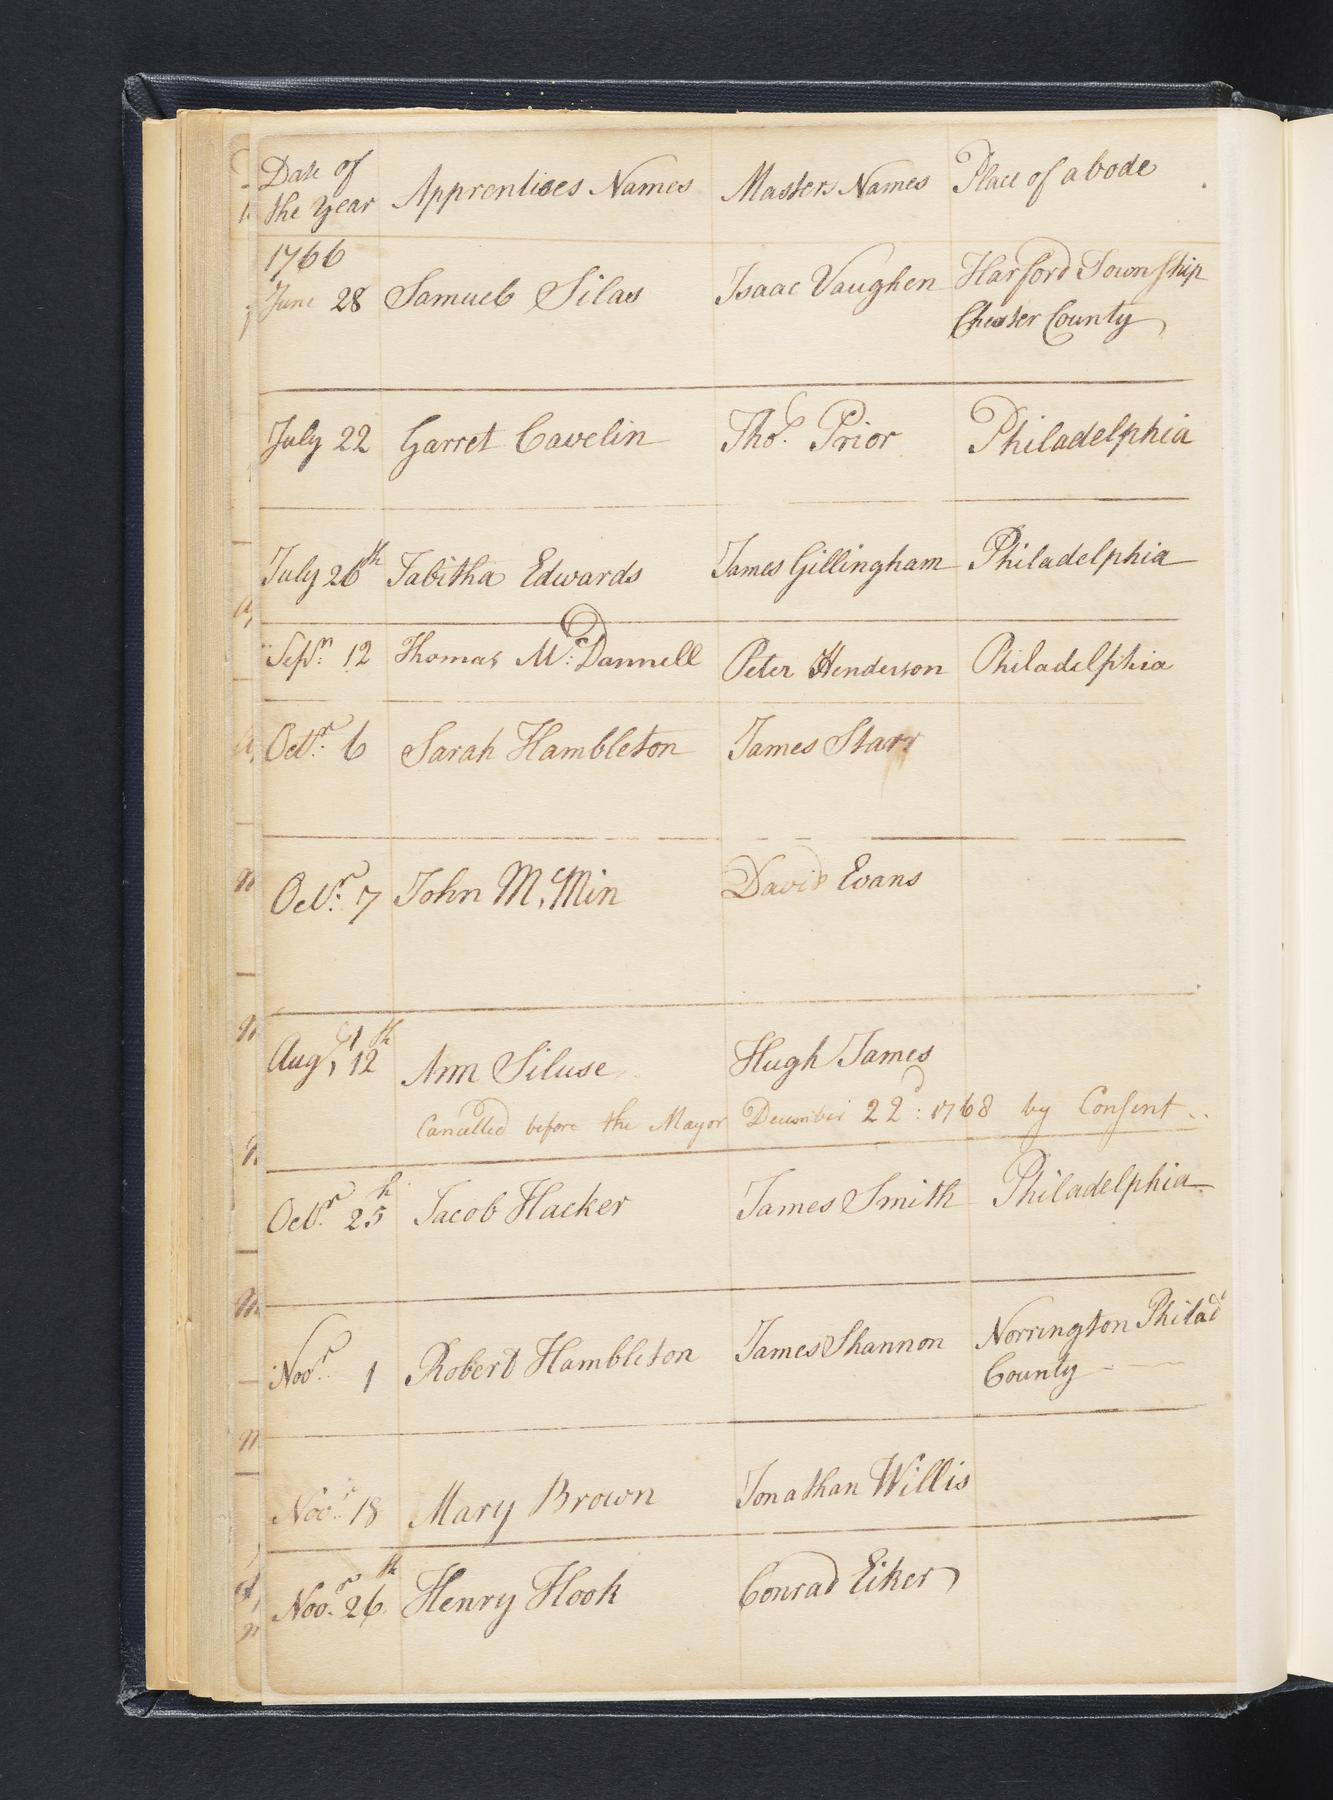 Date of the Year Apprentices Names Masters Names Place of abode
1766
June 28 Samuel Silas Isaac Vaughen Harford Township
Chester County
July 22 Garret Cavelin Tho.s Prior Philadelphia
July 26th Tabitha Edwards James Gillingham Philadelphia
Sepr. 12 Thomas Mc:Dannell Peter Henderson Philadelphia
Octr. 6 Sarah Hambleton James Starr
Octr. 7 John Mc,Min David Evans
Augt, 12th Ann Siluse Hugh James
Cancelled before the Mayor December 22d: 1768 by Consent..
Octr. 25th Jacob Hacker James Smith Philadelphia
Novr. 1 Robert Hambleton James Shannon Norrington Philad
County
Novr. 18 Mary Brown Jonathan Willis
Novr. 26th Henry Hook Conrad Eiker